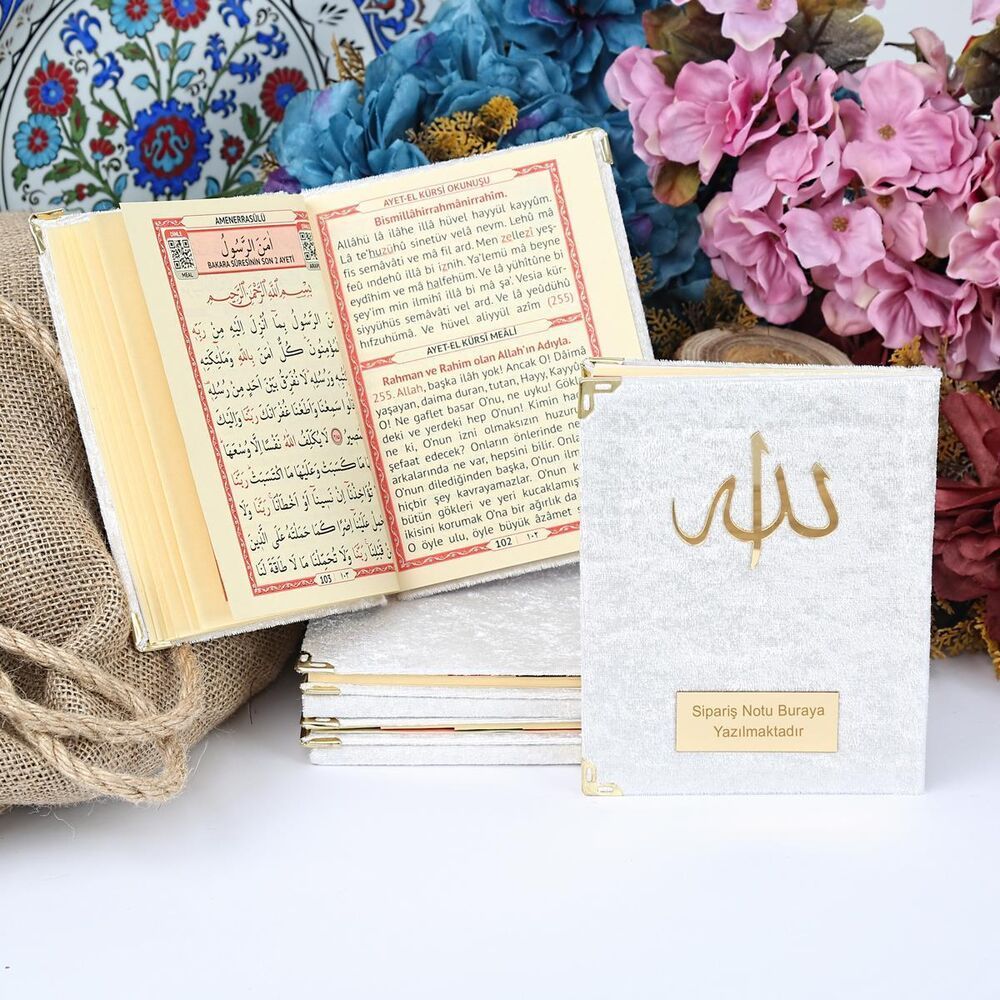 AMENERRASÛLÜ
DİNLE
MEAL
اٰمَنَ الرَّسُولُ
BAKARA SÛRESİNİN SON 2 AYETİ
بِسْمِ اللّٰهِ الرَّحْمٰنِ الرَّحِيمِ
اٰمَنَ الرَّسُولُ بِمَا اُنْزِلَ اِلَيْهِ مِنْ رَبِّهِ
وَالْمُؤْمِنُونَ كُلٌّ اٰمَنَ بِاللّٰهِ وَمَلٰٓئِكَتِهِ
وَكُتُبِهِ وَرُسُلِهِ لَا نُفَرِّقُ بَيْنَ اَحَدٍ مِنْ رُسُلِهِ
وَقَالُوا سَمِعْنَا وَاَطَعْنَا غُفْرَانَكَ رَبَّنَا وَاِلَيْكَ
الْمَصِيرُ لَا يُكَلِّفُ اللّٰهُ نَفْسًا اِلَّا وُسْعَهَا
لَهَا مَا كَسَبَتْ وَعَلَيْهَا مَا اكْتَسَبَتْ رَبَّنَا
لَا تُؤَاخِذْنَا اِنْ نَسِينَا اَوْ اَخْطَأْنَا رَبَّنَا وَلَا
تَحْمِلْ عَلَيْنَا اِصْرًا كَمَا حَمَلْتَهُ عَلَى الَّذِينَ
مِنْ قَبْلِنَا رَبَّنَا وَلَا تُحَمِّلْنَا مَا لَا طَاقَةَ لَنَا
103 ١٠٣
AYET-EL KÜRSİ OKUNUŞU
Bismillâhirrahmânirrahîm.
Allâhü lâ ilâhe illâ hüvel hayyül kayyûm.
Lâ te'huzühû sinetüv velâ nevm. Lehû mâ
fis semâvâti ve mâ fil ard. Men zellezî yeş-
feû ındehû illâ bi iznih. Ya'lemü mâ beyne
eydîhim ve mâ halfehüm. Ve lâ yühîtûne bi
şey'im min ilmihî illâ bi mâ şa'. Vesia kür-
siyyühüs semâvâti vel ard. Ve lâ yeûdühû
hıfzuhümâ. Ve hüvel aliyyül azîm (255)
AYET-EL KÜRSİ MEALİ
Rahman ve Rahim olan Allah'ın Adıyla.
255. Allah, başka ilâh yok! Ancak O! Dâimâ
yaşayan, daima duran, tutan, Hayy, Kayyû
O! Ne gaflet basar O'nu, ne uyku! Gökl
deki ve yerdeki hep O'nun! Kimin ha
ne ki, O'nun izni olmaksızın huzurun
şefaat edecek? Onların önlerinde
arkalarında ne var, hepsini bilir. Onla
O'nun dilediğinden başka, O'nun ilm
hiçbir şey kavrayamazlar. O'nun
bütün gökleri ve yeri kucaklamış
ikisini korumak O'na bir ağırlık da
O öyle ulu, öyle büyük âzamet s
102 ١٠٢
الله
Sipariş Notu Buraya
Yazılmaktadır